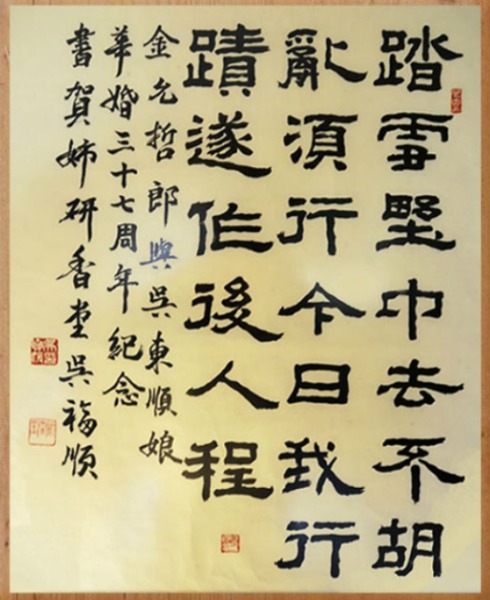 踏雪墅中去不胡
亂須行今日我行
蹟遂作後人程
金允哲郎與吳東順娘
華婚三十七周年紀念
書賀姉研香堂吳福順